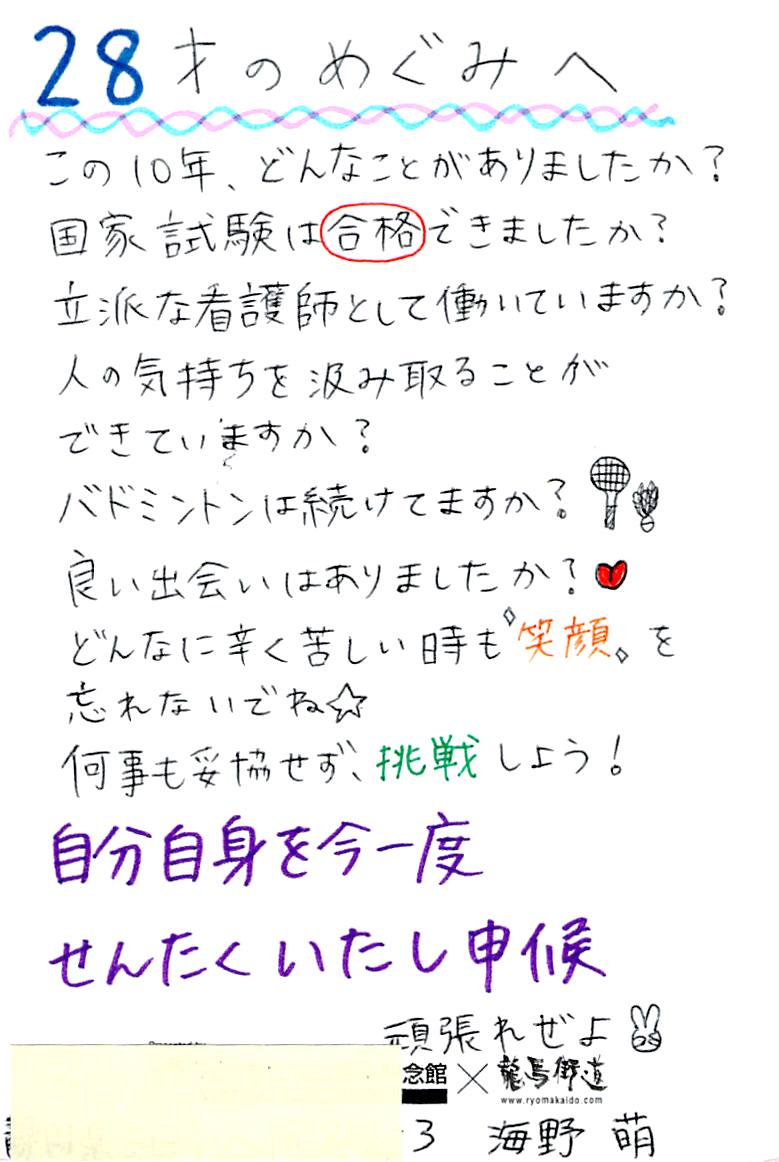 28才のめぐみへ
この10年、どんなことがありましたか？
国家試験は合格できましたか？
立派な看護師として働いていますか？
人の気持ちを汲み取ることが
できていますか？
バドミントンは続けてますか？
良い出会いはありましたか？
どんなに辛く苦しい時も笑顔を
忘れないでね☆
何事も妥協せず、挑戦しよう！
自分自身を今一度
せんたくいたし申候
頑張れぜよ
念館×龍馬街道
www.ryomakaido.com
3 海野 萌